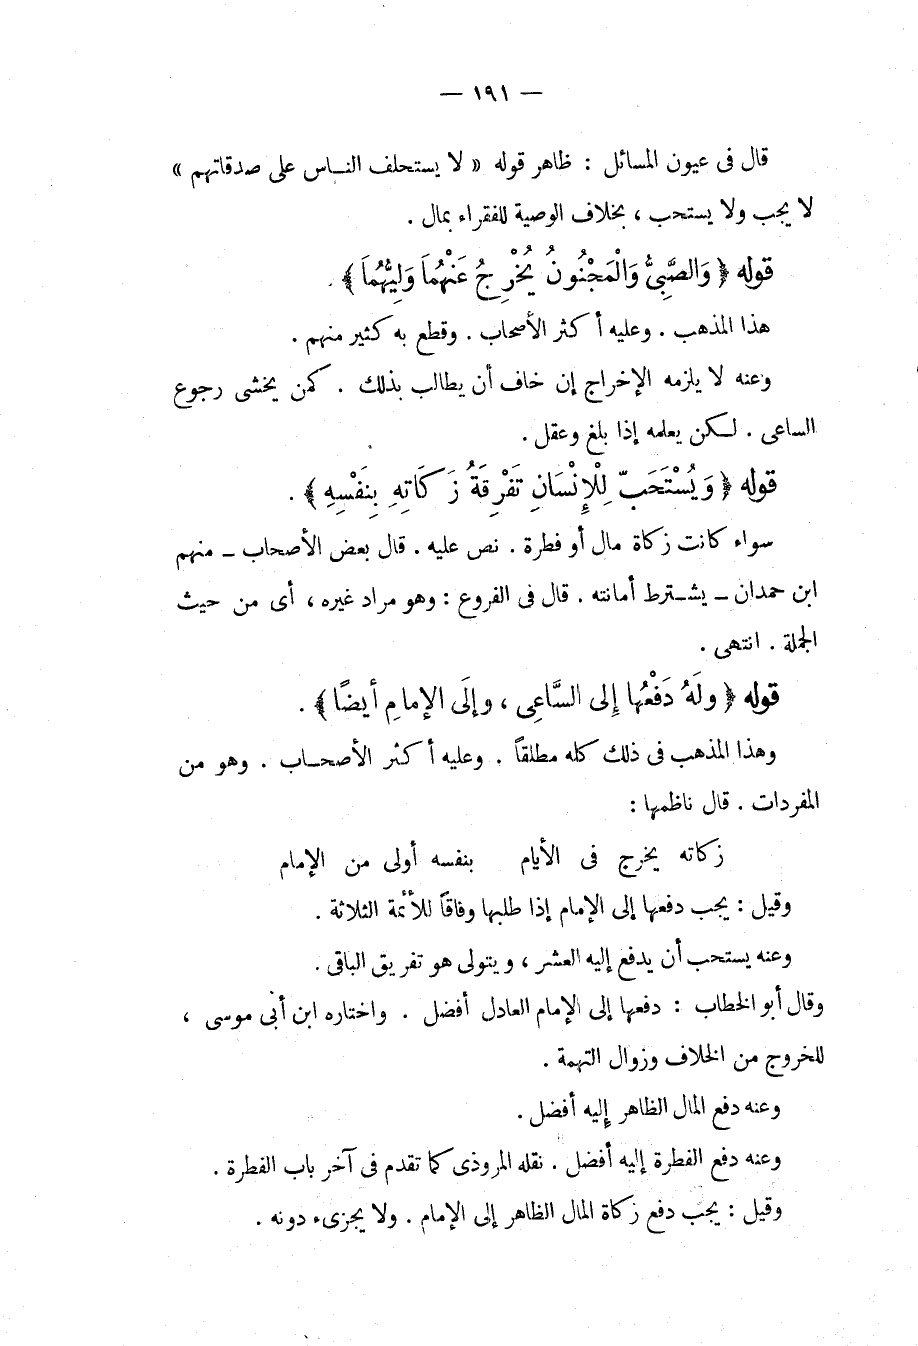 — ١٩١ —
قال فى عيون المسائل : ظاهر قوله « لا يستحلف الناس على صدقاتهم »
لا يجب ولا يستحب ، بخلاف الوصية للفقراء بمال .
قوله ﴿ وَالصَّبِىُّ وَالْمَجْنُونُ يُخْرِجُ عَنْهُمَا وَلِيُّهُمَا ﴾ .
هذا المذهب . وعليه أكثر الأصحاب . وقطع به كثير منهم .
وعنه لا يلزمه الإخراج إن خاف أن يطالب بذلك . كمن يخشى رجوع
الساعى . لكن يعلمه إذا بلغ وعقل .
قوله ﴿ وَيُسْتَحَبّ لِلْإِنْسَانِ تَفْرِقَةُ زَكَاتِهِ بِنَفْسِهِ ﴾ .
سواء كانت زكاة مال أو فطرة . نص عليه . قال بعض الأصحاب ــ منهم
ابن حمدان ــ يشترط أمانته . قال فى الفروع : وهو مراد غيره ، أى من حيث
الجملة . انتهى .
قوله ﴿ ولَهُ دَفْعُها إِلى السَّاعِى ، وإلَى الإمامِ أيضًا ﴾ .
وهذا المذهب فى ذلك كله مطلقاً . وعليه أكثر الأصحاب . وهو من
المفردات . قال ناظمها :
زكاته يخرج فى الأيام بنفسه أولى من الإمام
وقيل : يجب دفعها إلى الإمام إذا طلبها وفاقاً للأئمة الثلاثة .
وعنه يستحب أن يدفع إليه العشر ، ويتولى هو تفريق الباقى .
وقال أبو الخطاب : دفعها إلى الإمام العادل أفضل . واختاره ابن أبى موسى ،
للخروج من الخلاف وزوال التهمة .
وعنه دفع المال الظاهر إليه أفضل .
وعنه دفع الفطرة إليه أفضل . نقله المروذى كما تقدم فى آخر باب الفطرة .
وقيل : يجب دفع زكاة المال الظاهر إلى الإمام . ولا يجزىء دونه .